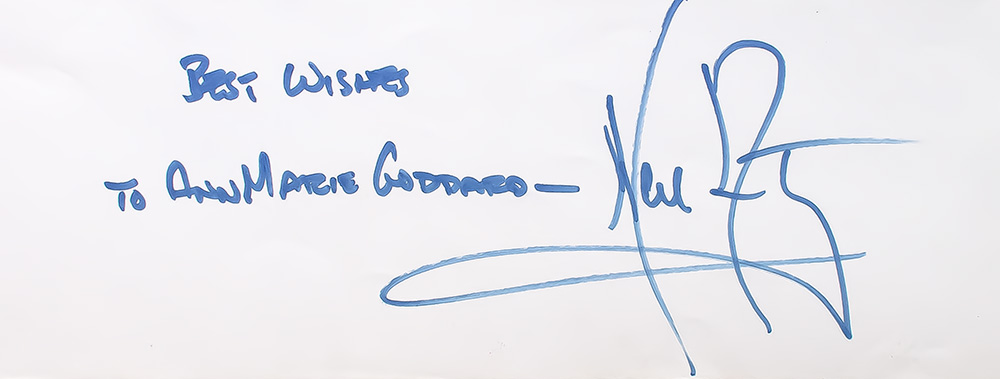 BEST WISHES
TO ANNMARIE GODDARD —